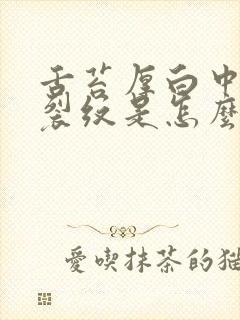 舌苔厚白中
裂纹是怎麼
愛喫抹茶的猫